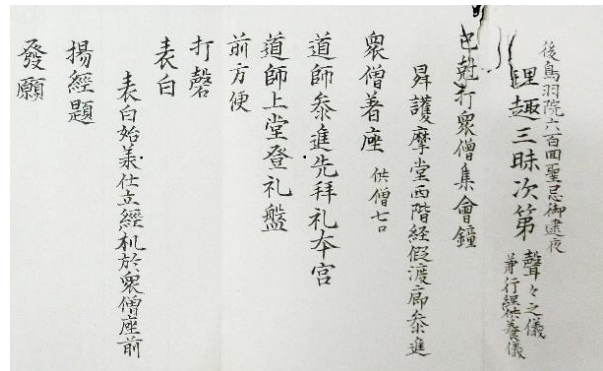 後鳥羽院六百回聖忌御逮夜
理趣三昧次第
聲々之儀
兼行経供養儀
巳尅打衆僧集會鐘
昇護摩堂西階経假渡廊参進
衆僧著座
供僧七口
道師参進先拝礼本宮
道師上堂登礼盤
前方便
打磬
表白
表白始義仕立經机於衆僧座前
揚經題
發願